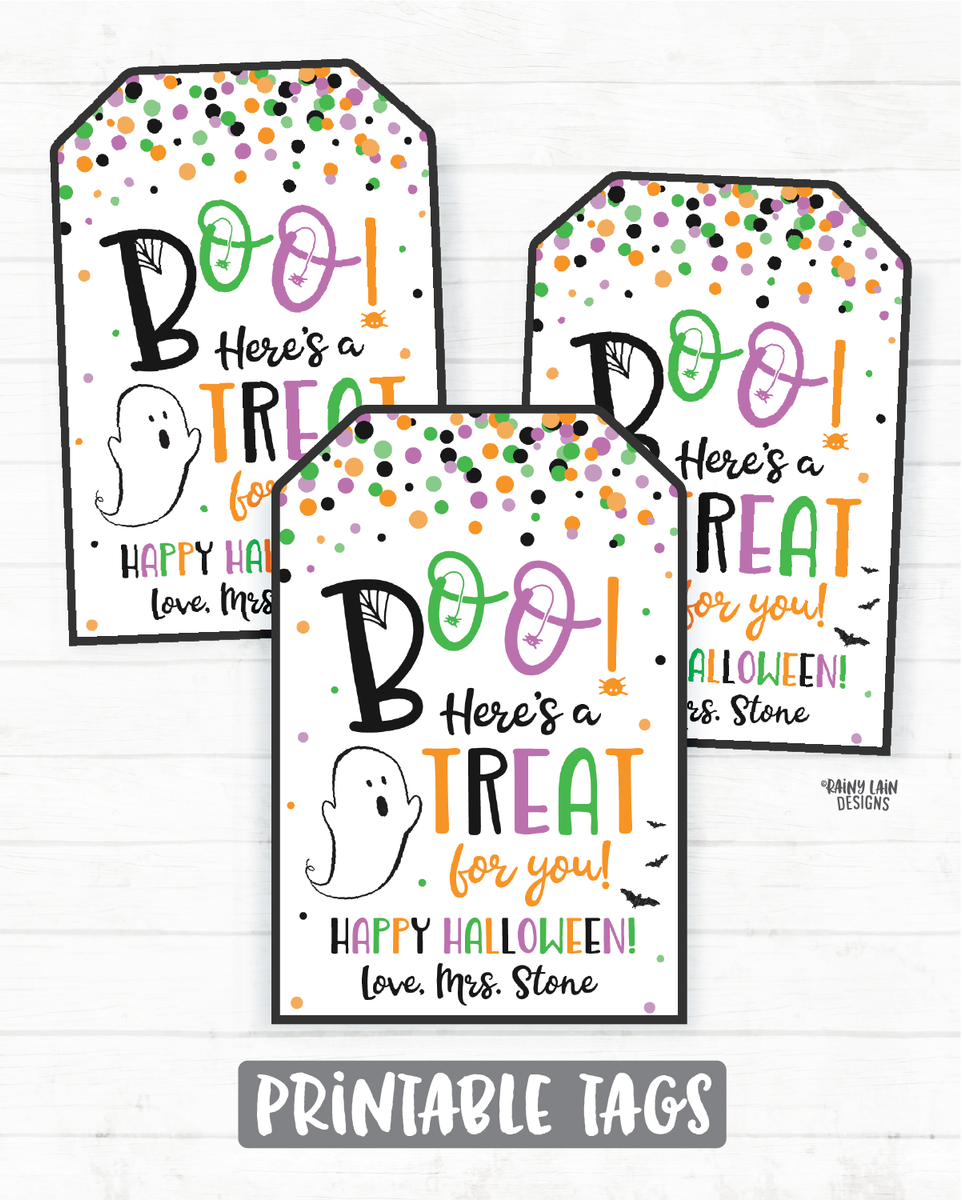 BOO!
Here's a
TREAT
for
HAPPY HAL
Love, Mrs
BOO!
Here's a
TREAT
for you!
ALLOWEEN!
rs. Stone
BOO!
Here's a
TREAT
for you!
HAPPY HALLOWEEN!
Love, Mrs. Stone
©RAINY LAIN
DESIGNS
PRINTABLE TAGS